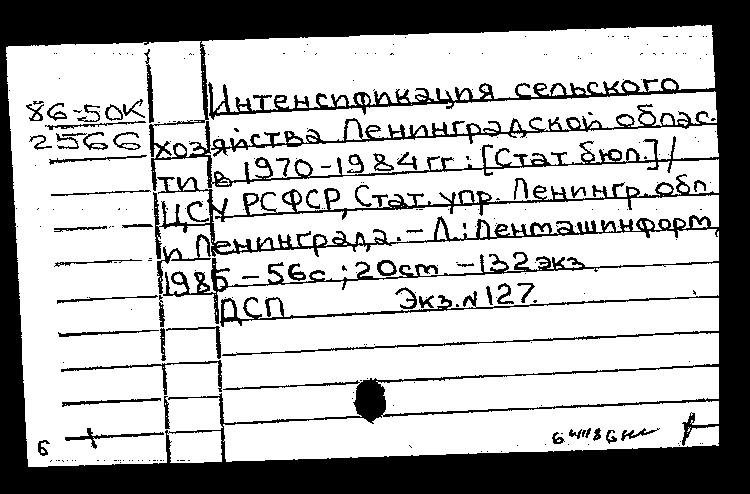 86-50К
2566
Интенсификация сельского
хозяйства Ленинградской облас-
ти в 1970-1984 гг: [Стат. бюл.] /
ЦСУ РСФСР, Стат. упр. Ленингр. обл.
и Ленинграда. - Л.: Ленмашинформ,
1985 - 56с.; 20см. - 132 экз.
ДСП Экз. № 127.
6